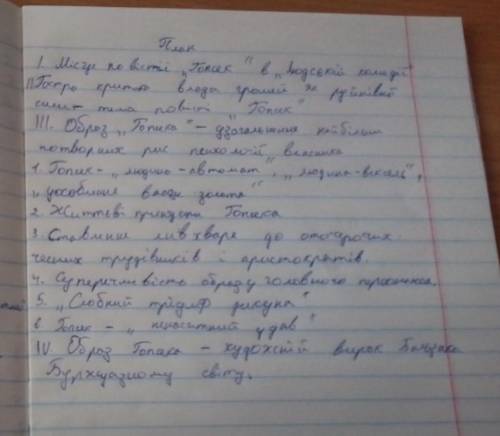 План
I. Місце повісті „Гобсек" в „Людській комедії"
II. Гостра критика влада грошей як руйнівної
сили тема повісті „Гобсек"
III. Образ „Гобсека" – узагальнення найбільш
потворних рис психології власника
1. Гобсек - „людина-автомат", „людина-вексель",
„уособлення влади золота"
2. Життєві принципи Гобсека
3. Ставлення лихваря до оточуючих
чесних трудівників і аристократів.
4. Суперечливість образу головного персонажа.
5. „Срібний тріумф"
6. Гобсек - „ненаситний удав"
IV. Образ Гобсека – художній вирок Бальзака
Буржуазному світу.